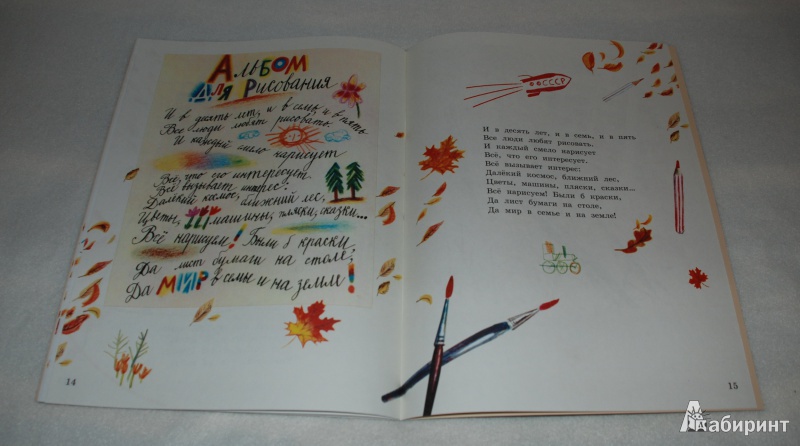 Альбом
для рисования
И в десять лет, и в семь, и в пять
Все люди любят рисовать.
И каждый смело нарисует
Всё, что его интересует.
Всё вызывает интерес:
Далёкий космос, ближний лес,
Цветы, машины, пляски, сказки...
Всё нарисуем! Были б краски
Да лист бумаги на столе,
Да мир в семье и на земле!
14
СССР
И в десять лет, и в семь, и в пять
Все люди любят рисовать.
И каждый смело нарисует
Всё, что его интересует.
Всё вызывает интерес:
Далёкий космос, ближний лес,
Цветы, машины, пляски, сказки...
Всё нарисуем! Были б краски,
Да лист бумаги на столе,
Да мир в семье и на земле!
15
Лабиринт